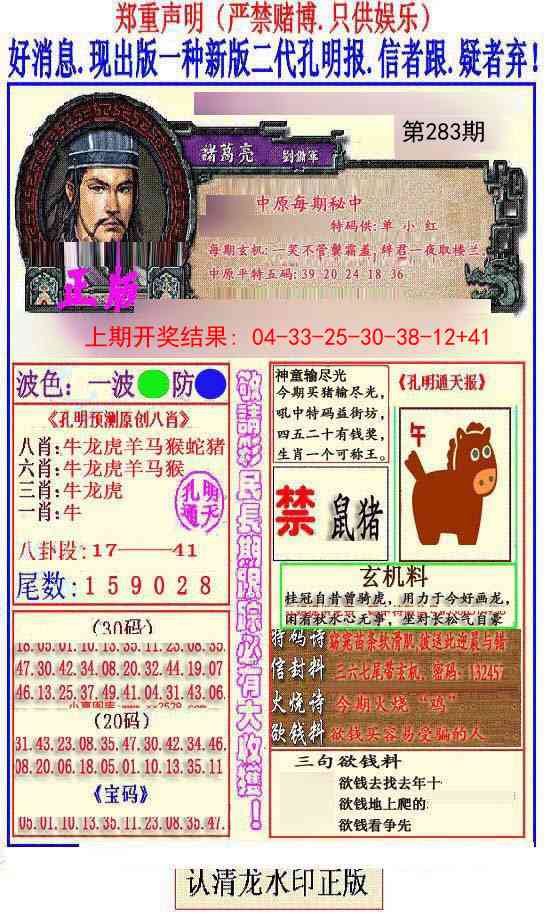 郑重声明（严禁赌博.只供娱乐）
好消息.现出版一种新版二代孔明报.信者跟.疑者弃!
第283期
諸葛亮 劉備軍
中原每期秘中
特码供:单 小 红
每期玄机:一笑不管霸盖,辞君一夜取楼兰.
中原平特五码:39 20 24 18 36
正版
上期开奖结果: 04-33-25-30-38-12+41
波色: 一波 防
《孔明预测原创八肖》
八肖:牛龙虎羊马猴蛇猪
六肖:牛龙虎羊马猴
三肖:牛龙虎
一肖:牛
孔明通天
八卦段:17——41
尾数:159028
(30码)
18.05.01.10.13.35.11.23.08.35.
47.30.42.34.08.20.32.44.19.07
46.13.25.37.49.41.04.31.43.06.
(20码)
31.43.23.08.35.47.30.42.34.46.
08.20.06.18.05.01.10.13.35.11
《宝码》
05.01.10.13.35.11.23.08.35.47.
敬請彩民長期跟踪必有大收獲!
神童输尽光
今期买猪输尽光,
吼中特码益街坊,
四五二十有钱奖,
生肖一个可称王。
《孔明通天报》
午
禁 鼠猪
玄机料
桂冠自昔曾骑虎, 用力于今好画龙,
闲看秋水心无事, 坐对长松气自豪
特码诗 窈窕苗条软滑肌,被送此迎晨与错
信封料 三六七尾带玄机, 密码: 132457
火烧诗 今期火烧“鸡”
欲钱料 欲钱买容易受骗的人
三句欲钱料
欲钱去找去年十
欲钱地上爬的
欲钱看争先
认清龙水印正版